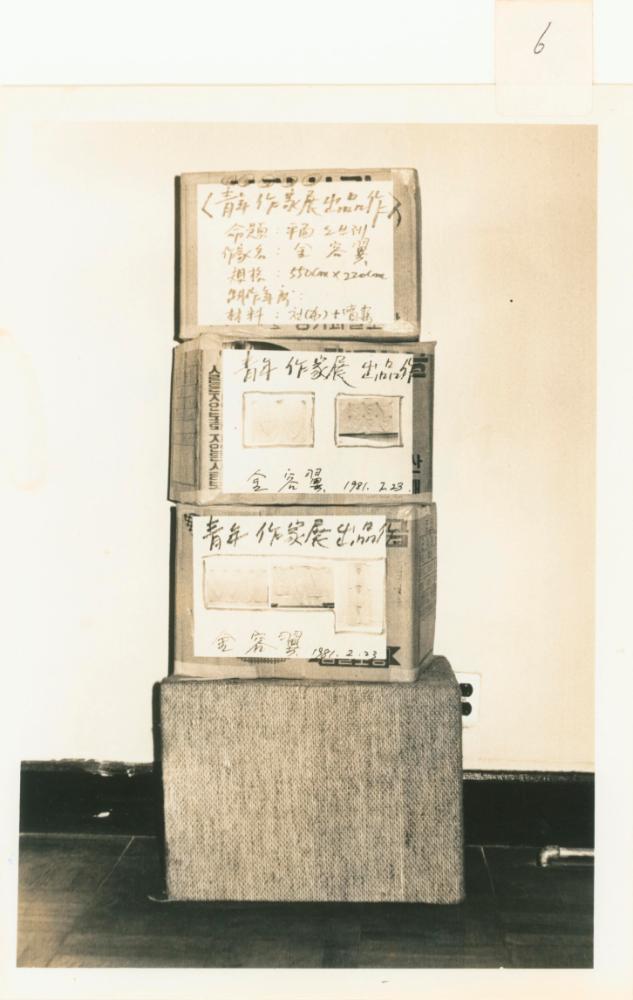 6
〈青年 作家展 出品作〉
命題 : 平面 오브제
作家名 : 金 容 翼
規格 : 550cm × 220cm
制作年度 :
材料 : 천(布) + 噴霧
青年 作家展 出品作
金 容 翼 1981. 2. 23.
青年 作家展 出品作
金 容 翼 1981. 2. 23